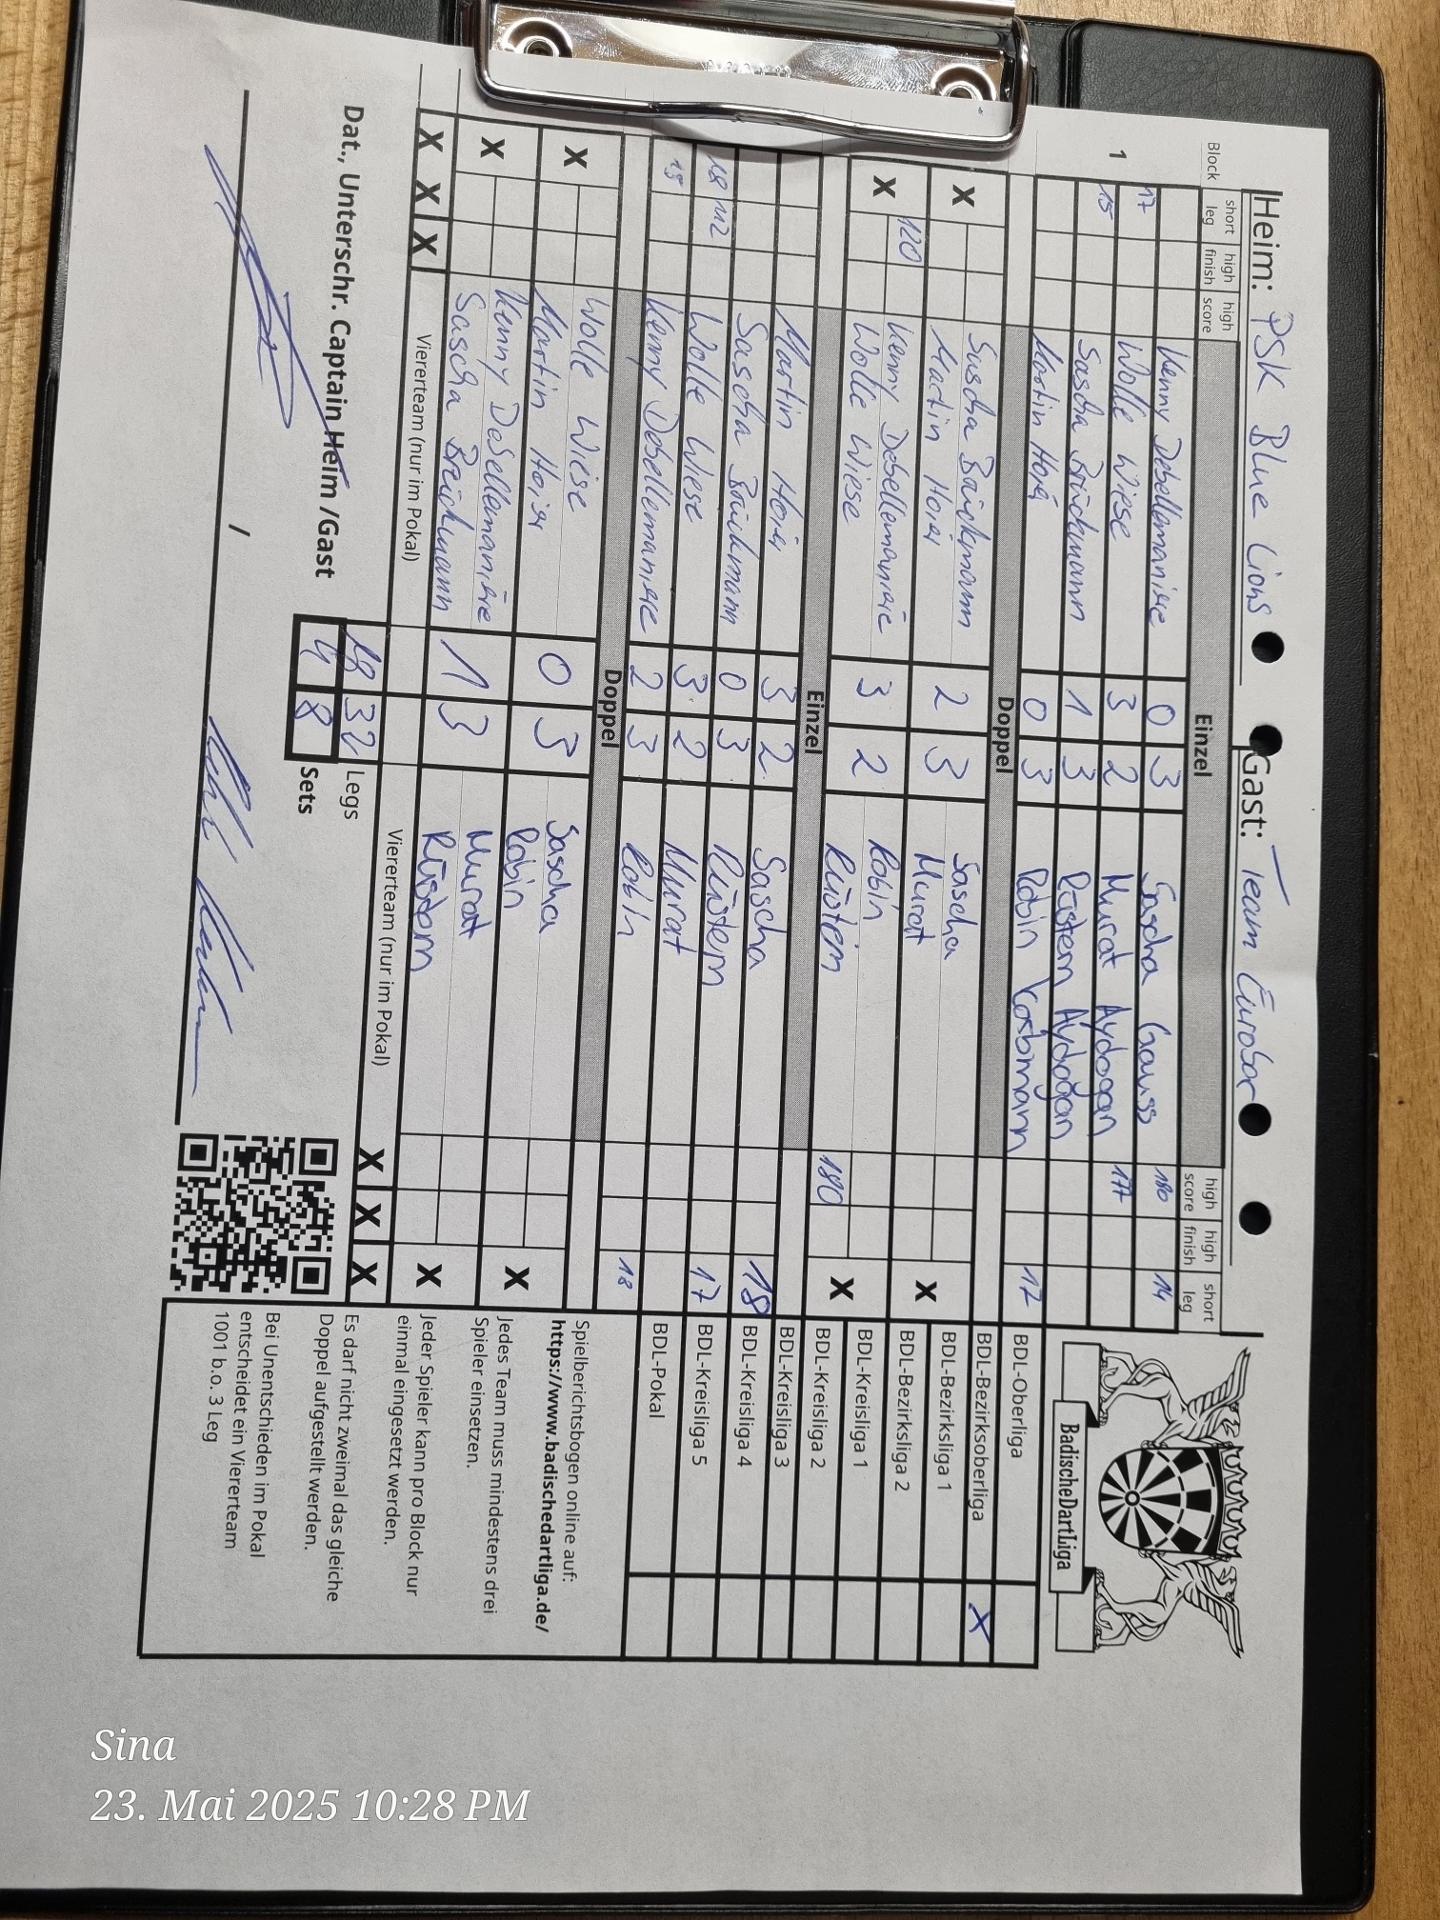 Heim: PSK Blue Lions Gast: Team Eurobar
Block short leg high finish high score Einzel high score high finish short leg
Kenny Debellemanière 0 3 Sascha Gauss 180 14
1 17 Wolle Wiese 3 2 Murat Aydogan 177
15 Sascha Brückmann 1 3 Rüstem Aydoğan
Martin Horá 0 3 Robin 17
Doppel
X Sascha Brückmann 2 3 Sascha X
Martin Horá Murat
X 120 Kenny Debellemanière 3 2 Robin X
Wolle Wiese Rüstem 180
Einzel
Martin Horá 3 2 Sascha
Sascha Brückmann 0 3 Rüstem 18
18 112 Wolle Wiese 3 2 Murat 17
Kenny Debellemanière 2 3 Robin 18
Doppel
X Wolle Wiese 0 3 Sascha X
Martin Horá Robin
X Kenny Debellemanière 1 3 Murat X
Sascha Brückmann Rüstem
X X X Viererteam (nur im Pokal) Viererteam (nur im Pokal) X X X
18 32 Legs
Dat., Unterschr. Captain Heim /Gast 4 8 Sets
/
BadischeDartLiga
BDL-Oberliga
BDL-Bezirksoberliga X
BDL-Bezirksliga 1
BDL-Bezirksliga 2
BDL-Kreisliga 1
BDL-Kreisliga 2
BDL-Kreisliga 3
BDL-Kreisliga 4
BDL-Kreisliga 5
BDL-Pokal
Spielberichtsbogen online auf:
https://www.badischedartliga.de/
Jedes Team muss mindestens drei
Spieler einsetzen.
Jeder Spieler kann pro Block nur
einmal eingesetzt werden.
Es darf nicht zweimal das gleiche
Doppel aufgestellt werden.
Bei Unentschieden im Pokal
entscheidet ein Viererteam
1001 b.o. 3 Leg
Sina
23. Mai 2025 10:28 PM